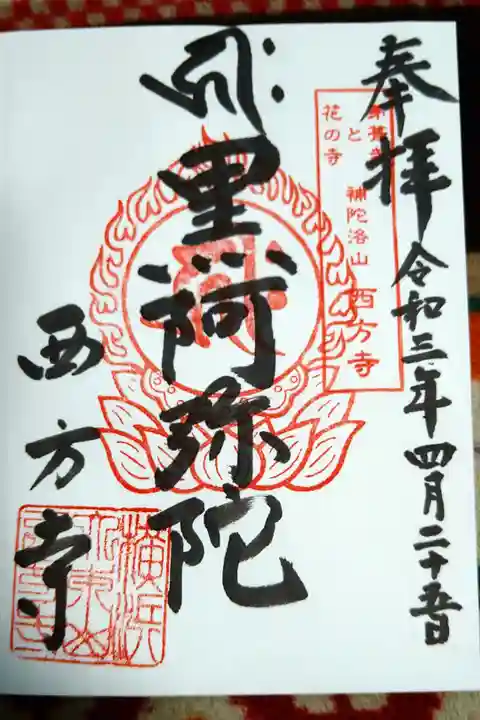 奉拝
令和三年四月二十五日
と
花の寺
補陀洛山 西方寺
黒阿弥陀
西方寺
横浜